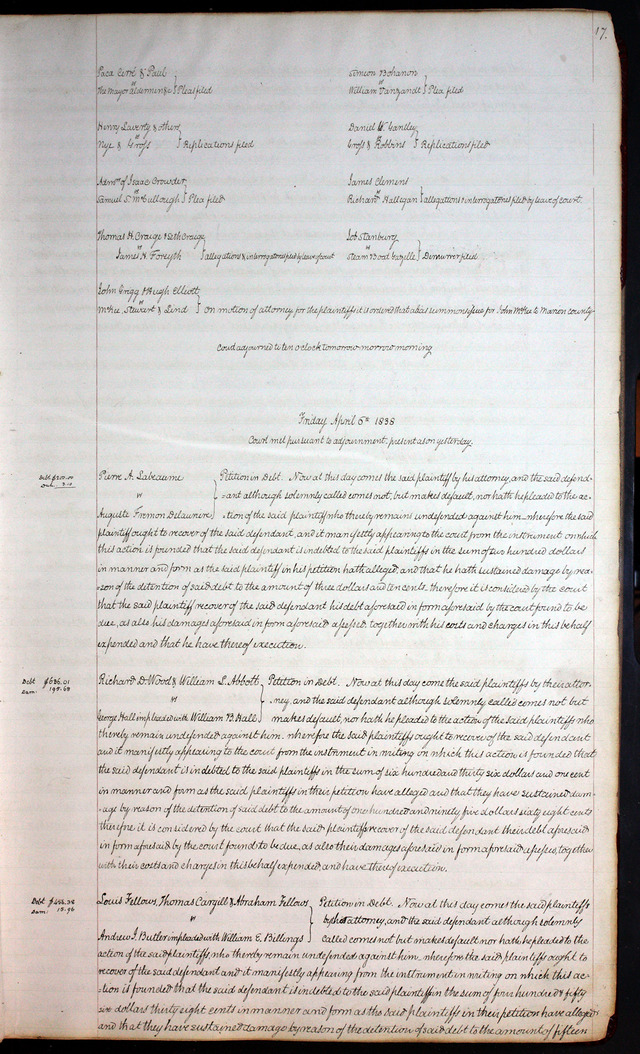 17.
Paca Cerré & Paul
vs
The Mayor aldermen &c } Pleas filed
Simeon Bohanon
vs
William Vanzandt } Plea filed
Henry Laverty & others
vs
Nye & Gross } Replications filed
Daniel W. Gantley
Gross & Robbins } Replications filed
Admrs of Isaac Crowder
vs
Samuel S. McCullough } Plea filed
James Clemens
vs
Richard Halligan } allegations & interrogatories filed by leave of court.
Thomas H. Craige & Seth Craige
vs
James H. Forsyth } allegations & interrogatories filed by leave of court
Job Stanbury
vs
Steam Boat Gazelle } Demurrer filed
John Grigg & Hugh Elliott
vs
McKee, Stewart & Lind } on motion of attorney for the plaintiffs it is ordered that alias summons issue for John McKee to Marion county.
Court adjourned to ten o'clock tomorrow morrow morning
Friday April 6th 1838
Court met pursuant to adjournment. present as on yesterday.
Debt $200.00
Dam. 3.10
Pierre A. Labeaume } Petition in Debt. Now at this day comes the said plaintiff by his attorney, and the said defend-
vs -ant although solemnly called comes not, but makes default, nor hath he pleaded to the ac-
Auguste Fremon Delauriere } -tion of the said plaintiff who thereby remains undefended against him wherefore the said
plaintiff ought to recover of the said defendant, and it manifestly appearing to the court from the instrument on which
this action is founded that the said defendant is indebted to the said plaintiffs in the sum of two hundred dollars
in manner and form as the said plaintiff in his petition hath alleged, and that he hath sustained damage by rea-
-son of the detention of said debt to the amount of three dollars and ten cents. therefore it is considered by the court
that the said plaintiff recover of the said defendant his debt aforesaid in form aforesaid by the court found to be
due, as also his damages aforesaid in form aforesaid assessed, together with his costs and charges in this behalf
expended and that he have thereof execution.
Debt $636.01
Dam: 195.68
Richard D. Wood & William L. Abbott } Petition in Debt. Now at this day come the said plaintiffs by their attor-
vs ney, and the said defendant although solemnly called comes not but
George Hall impleaded with William B. Hall } makes default, nor hath he pleaded to the action of the said plaintiff who
thereby remain undefended against him. wherefore the said plaintiffs ought to recover of the said defendant
and it manifestly appearing to the court from the instrument in writing on which this action is founded that
the said defendant is indebted to the said plaintiffs in the sum of six hundred and thirty six dollars and one cent
in manner and form as the said plaintiffs in their petition have alleged and that they have sustained dam-
-age by reason of the detention of said debt to the amount of one hundred and ninety five dollars sixty eight cents
therefore it is considered by the court that the said plaintiffs recover of the said defendant their debt aforesaid
in form aforesaid by the court found to be due, as also their damages aforesaid in form aforesaid assessed, together
with their costs and charges in this behalf expended, and have thereof execution.
Debt $456.38
Dam: 15.96
Louis Fellows, Thomas Cargill & Abraham Fellows } Petition in Debt. Now at this day comes the said plaintiffs
vs by their attorney, and the said defendant although solemnly
Andrew J. Butler impleaded with William E. Billings } called comes not but makes default nor hath he pleaded to the
action of the said plaintiffs, who thereby remain undefended against him, wherefore the said plaintiffs ought to
recover of the said defendant and it manifestly appearing from the instrument in writing on which this ac-
-tion is founded that the said defendant is indebted to the said plaintiffs in the sum of four hundred & fifty
six dollars thirty eight cents in manner and form as the said plaintiffs in their petition have alleged
and that they have sustained damage by reason of the detention of said debt to the amount of fifteen